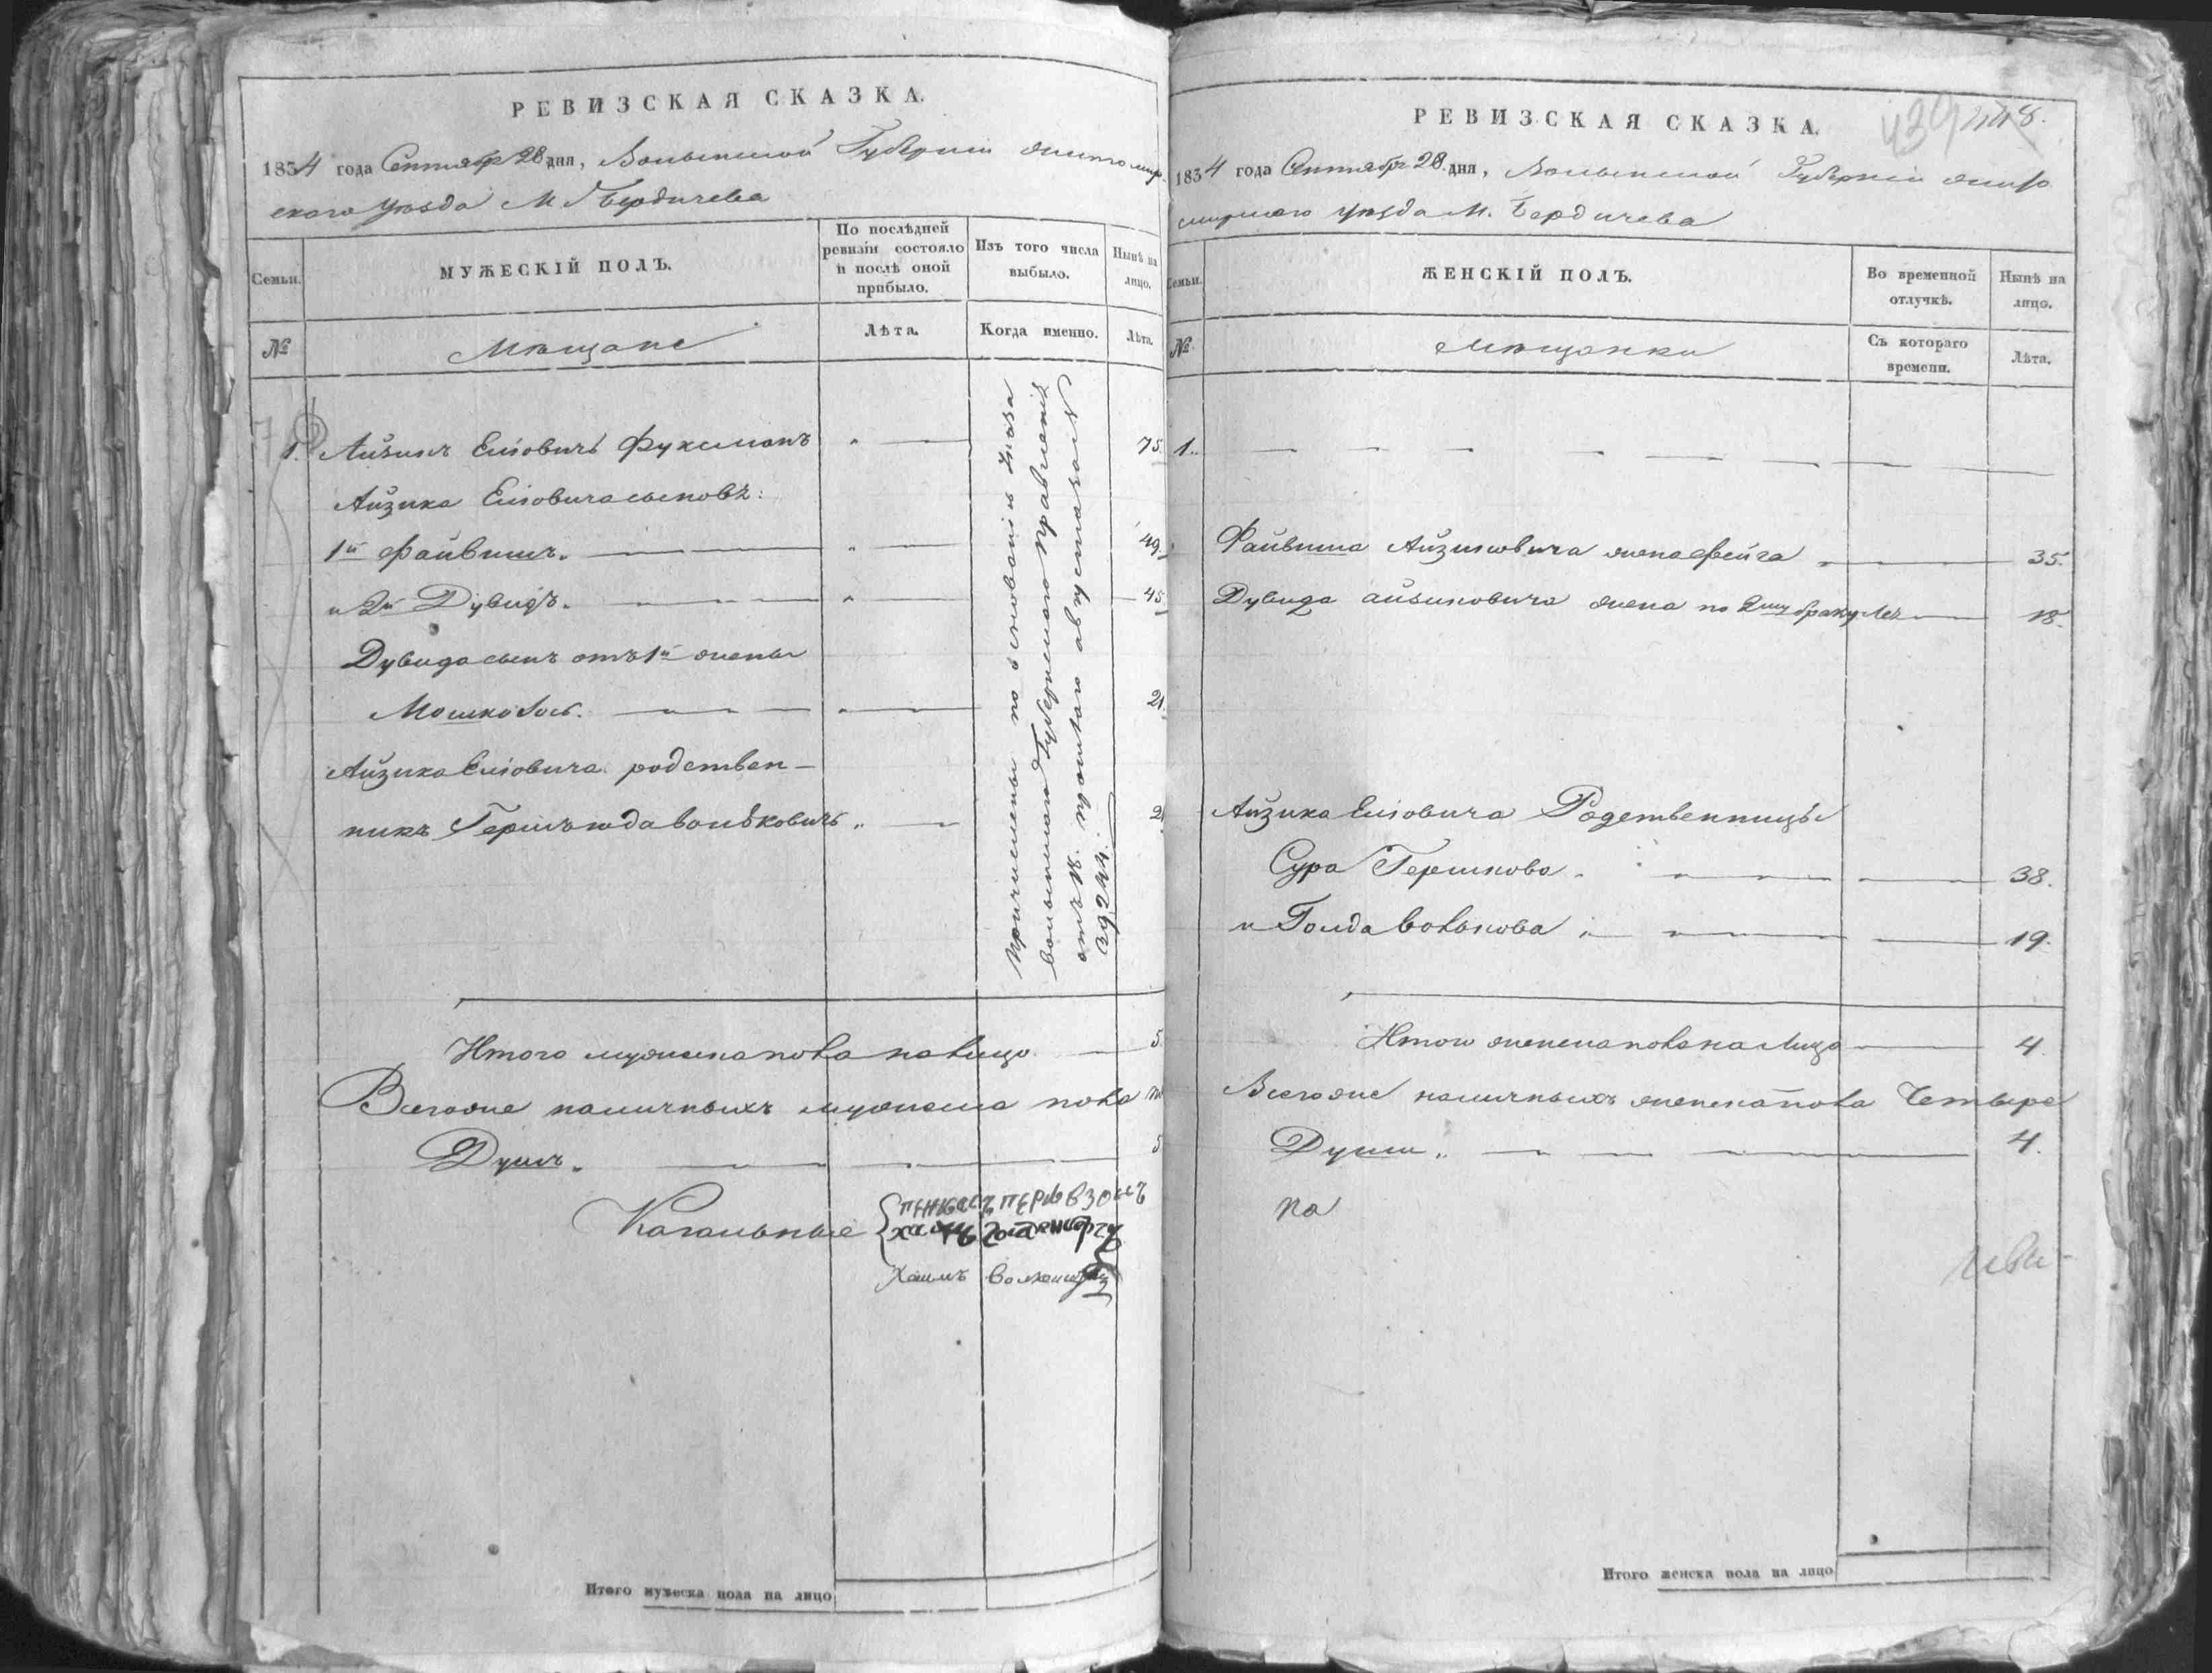 РЕВИЗСКАЯ СКАЗКА.
1834 года Сентябр 28 дня, Волынской Губернии Житомир
ского уѣзда М Бердичева
Семьи.
МУЖЕСКІЙ ПОЛЪ.
По послѣдней ревизіи состояло и послѣ оной прибыло.
Изъ того числа выбыло.
Нынѣ на лицо.
№
Мѣщане
Лѣта.
Когда именно.
Лѣта.
1. Айзикъ Еліовичъ Фуксманъ " 75.
Айзика Еліовича сыновъ:
1й Файвишъ. " 49.
и 2й Дувидъ. " 45
Дувида сынъ отъ 1й жены
Мошко " 21.
Айзика Еліовича родствен–
никъ Гершъ юда Вольковичъ " 21
Причислены по основаніи Указа
Волынского Губернского Правленія
отъ 18. прошлого августа за №
29244.
Итого мужеска пола на лицо 5.
Всего же наличныхъ мужеска пола
Душъ. 5
Кагальные
Хаимъ
Итого мужеска пола на лицо
РЕВИЗСКАЯ СКАЗКА.
439 448.
1834 года Сентябр 28. дня, Волынской Губерніи Жито
мирского уѣзда М. Бердичева
Семьи.
ЖЕНСКІЙ ПОЛЪ.
Во временной отлучкѣ.
Нынѣ на лицо.
№
Мѣщанки
Съ котораго времени.
Лѣта.
1.
Файвиша Айзиковича жена Фейга 35.
Дувида Айзиковича жена по 2му браку Лея 18.
Айзика Еліовича Родственницы
Сура Гершкова 38.
и Голда Волькова 19.
Итого женска пола на лицо 4.
Всего же наличныхъ женска пола Четыре
Души 4.
По
Итого женска пола на лицо